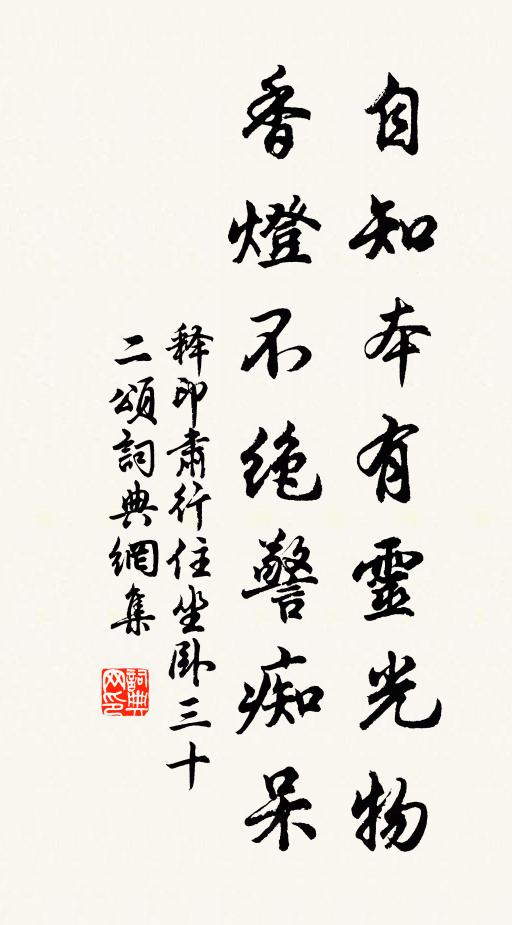 自知本有靈光物
香燈不绝警痴呆
释印肃行住坐卧三十
二頌詞典網集
詞典网印